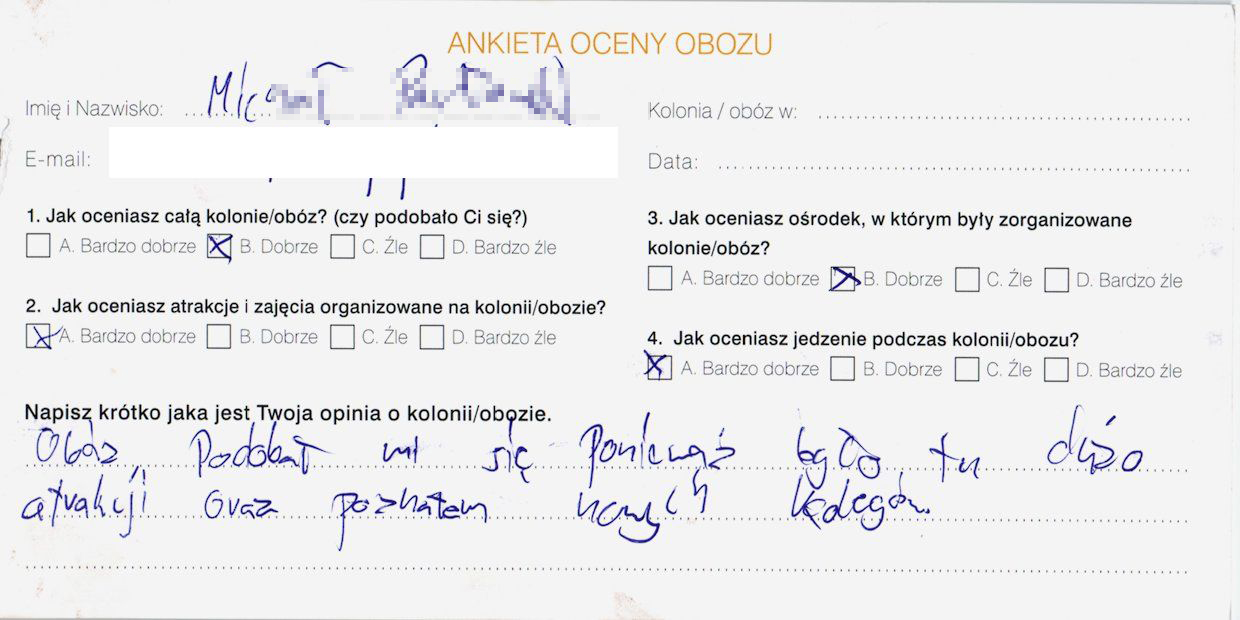 ANKIETA OCENY OBOZU
Imię i Nazwisko:
E-mail:
Kolonia / obóz w:
Data:
1. Jak oceniasz całą kolonie/obóz? (czy podobało Ci się?)
A. Bardzo dobrze B. Dobrze C. Źle D. Bardzo źle
2. Jak oceniasz atrakcje i zajęcia organizowane na kolonii/obozie?
A. Bardzo dobrze B. Dobrze C. Źle D. Bardzo źle
3. Jak oceniasz ośrodek, w którym były zorganizowane
kolonie/obóz?
A. Bardzo dobrze B. Dobrze C. Źle D. Bardzo źle
4. Jak oceniasz jedzenie podczas kolonii/obozu?
A. Bardzo dobrze B. Dobrze C. Źle D. Bardzo źle
Napisz krótko jaka jest Twoja opinia o kolonii/obozie.
Obóz Podobał mi się ponieważ było tu dużo
atrakcji oraz poznałem nowych kolegów.